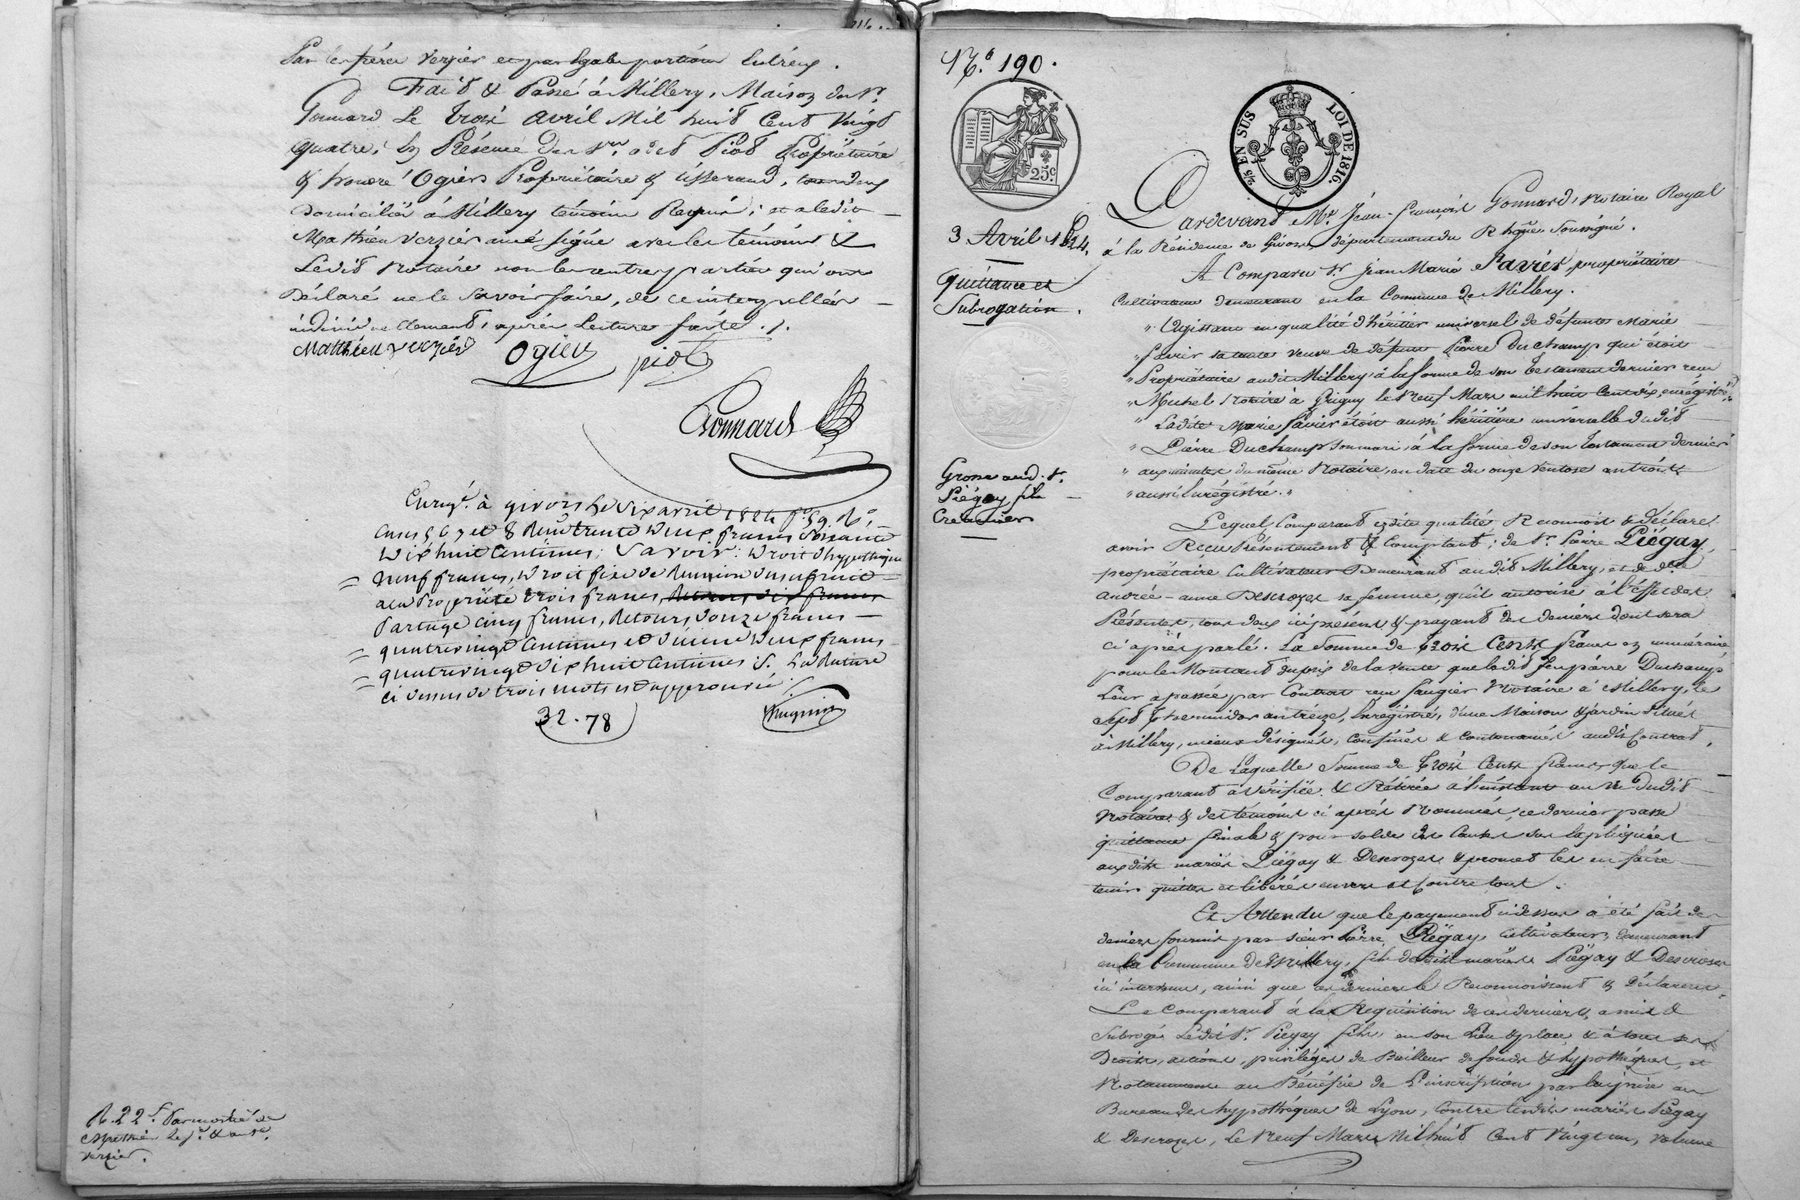 Par les frères Verzier et par Egale portion entr'eux.
Fait & Passé à Millery, Maison du Sr.
Gonnard Le trois avril Mil huit Cent Vingt
quatre; En Présence des Srs. Piot Propriétaire
& honoré Ogier Propriétaire & tisserand, tous deux
Domiciliés à Millery témoins Requis; et a ledit
Mathieu Verzier aîné signé avec les témoins &
Ledit Notaire non les autres parties qui ont
Déclaré ne le Savoir faire, de ce interpellés
individuellement, après Lecture faite./.
Mathieu verzier Ogier piot
Gonnard
Enregé. à givors le six avril 1824 fo. 59. Ro.
Cases 6 7 et 8 Reçu trente deux francs Soixante
dix huit Centimes; Savoir: droit d'hypothèque
neuf francs, droit fixe de Réunion d'usufruit
à la Propriété trois francs,
Partage cinq francs, Retours douze francs
quatrevingt Centimes et dixme deux francs
quatrevingt dix huit Centimes /. La Rature
ci dessus de trois mots est approuvée
32.78
R. 22 f. Par moitié de
Mathieu
verzier.
No. 190.
25 c.
25 EN SUS
LOI DE 1816.
3 Avril 1824.
Quittance et
Subrogation.
Grosse aud. Sr.
Piégay fils
Créancier
Pardevant Me. Jean-François Gonnard, Notaire Royal
à la Résidence de Givors, département du Rhône, Soussigné.
A Comparu Sr. Jean Marie Favier, propriétaire
Cultivateur demeurant en la Commune de Millery.
" Agissant en qualité d'héritier universel de défunte Marie
" favier sa tante veuve de défunt Pierre Duchamp qui étoit
" Propriétaire audit Millery, à la forme de son testament dernier reçu
" Michel Notaire à Grigny le Neuf Mars mil huit Cent dix, enregistré
" Ladite Marie favier étoit aussi héritière universelle dudit
" Pierre Duchamp son mari, à la forme de son testament dernier
" aux minutes du même Notaire, en date du onze Ventose an treize
" aussi Enrégistré."
Lequel Comparant esdite qualité, Reconnoit & déclare
avoir Reçu Présentement & Comptant; de Sr. Pierre Piégay,
propriétaire Cultivateur Demeurant audit Millery, et de dlle
andrée-anne Descrozes sa femme, qu'il autorise à l'effet des
Présentes, tous deux ici présens & payant des deniers dont sera
ci après parlé. La Somme de trois Cents francs en numéraire
pour le Montant du prix de la vente que ledit feu pierre Duchamp
Leur a passée par Contrat reçu Notaire à Millery, le
Sept thermidor an treize, Enregistré, d'une Maison & jardin situés
à Millery, mieux désignés, Confinés & Contenancés audit Contrat.
De Laquelle Somme de trois Cents francs que le
Comparant à vérifiée & Retirée à l'instant au vu dudit
Notaire & des témoins ci après Nommés, ce dernier passe
quittance finale & pour solde des Causes sus Expliquées
auxdits mariés Piégay & Descrozes, & promet les en faire
tenir quittes et libérés envers et Contre tous.
Et Attendu que le payement cidessus à été fait des
deniers fournis par sieur Pierre Piégay, cultivateur, demeurant
en la Commune de Millery, fils desdits mariés Piégay & Descrozes
ici intervenu, ainsi que ces derniers le Reconnoissent & Déclarent.
Le Comparant à la Réquisition de ces derniers, a mis &
Subrogé Ledit Sr. Piégay fils, en son Lieu & place, & à tous ses
Droits, actions, privilèges de Bailleur de fonds & hypothèques, et
Notamment au Bénéfice de L'inscription par lui prise au
Bureau des hypothèques de Lyon, Contre lesdits mariés Piégay
& Descrozes, Le Neuf Mars Mil huit Cent Vingt un, volume